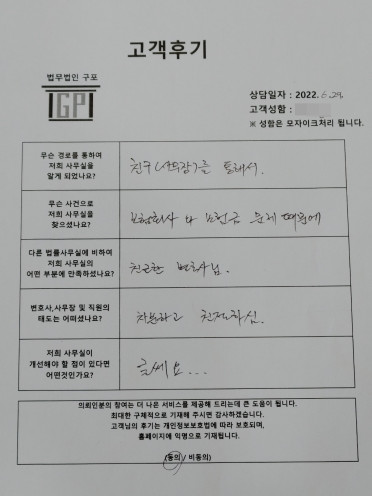 고객후기
법무법인 구포
GP
상담일자 : 2022. 6. 29.
고객성함 :
※ 성함은 모자이크처리 됩니다.
무슨 경로를 통하여
저희 사무실을
알게 되었나요?
친구(사무장)를 통해서.
무슨 사건으로
저희 사무실을
찾으셨나요?
보험회사와 보험금 문제 때문에
다른 법률사무실에 비하여
저희 사무실의
어떤 부분에 만족하셨나요?
친근한 변호사님.
변호사,사무장 및 직원의
태도는 어떠셨나요?
차분하고 친절하심.
저희 사무실이
개선해야 할 점이 있다면
어떤것인가요?
글쎄요...
의뢰인분의 참여는 더 나은 서비스를 제공해 드리는데 큰 도움이 됩니다.
최대한 구체적으로 기재해 주시면 감사하겠습니다.
고객님의 후기는 개인정보보호법에 따라 보호되며,
홈페이지에 익명으로 기재됩니다.
(동의 / 비동의)